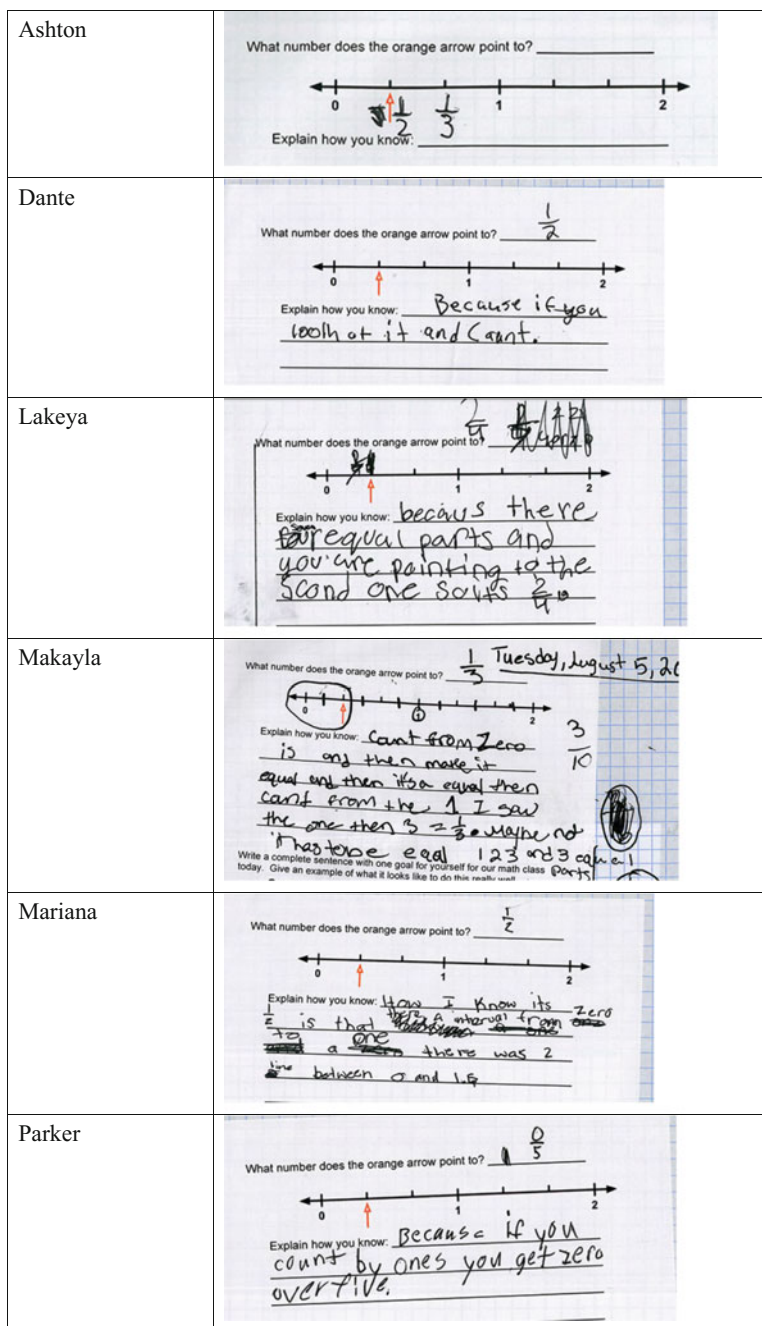 Ashton
What number does the orange arrow point to?
0 1 2
1/2 1/3
Explain how you know:
Dante
What number does the orange arrow point to? 1/2
0 1 2
Explain how you know: Because if you
loolh at it and Caunt.
Lakeya
2/4
What number does the orange arrow point to?
0 1 2
Explain how you know: becaus there
equal parts and
you are pointing to the
Scond one So it's 2/4
Makayla
Tuesday, August 5, 20
What number does the orange arrow point to? 1/3
0 1 2
Explain how you know: Count from Zero
3/10
is and then make it
equal and then its a equal then
cant from the 1 I saw
the one then 3 = 1/3. Maybe not
it has to be eqal 123 and 3
Write a complete sentence with one goal for yourself for our math class parts
today. Give an example of what it looks like to do this really well
Mariana
What number does the orange arrow point to? 1/2
0 1 2
Explain how you know: How I Know its
1/2 is that there a interval from zero
to one
a there was 2
line between 0 and 1.
Parker
What number does the orange arrow point to? 0/5
0 1 2
Explain how you know: Because if you
count by ones you get zero
over five.